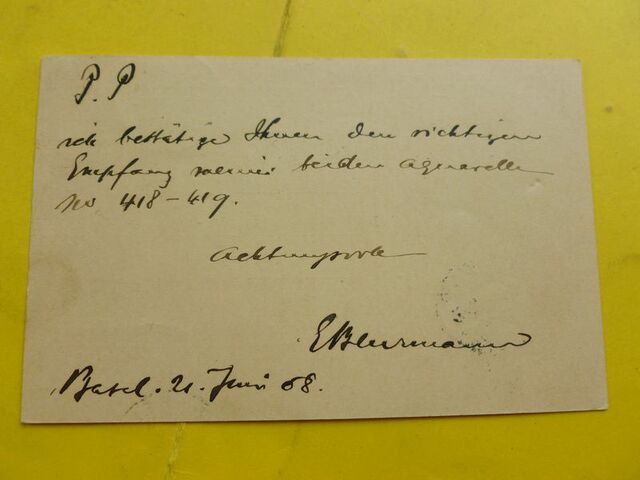 P. P
ich bestätige Ihnen den richtigen
Empfang meiner beiden Aquarelle
No 418 – 419.
Achtungsvoll
Basel. 21. Juni 08.